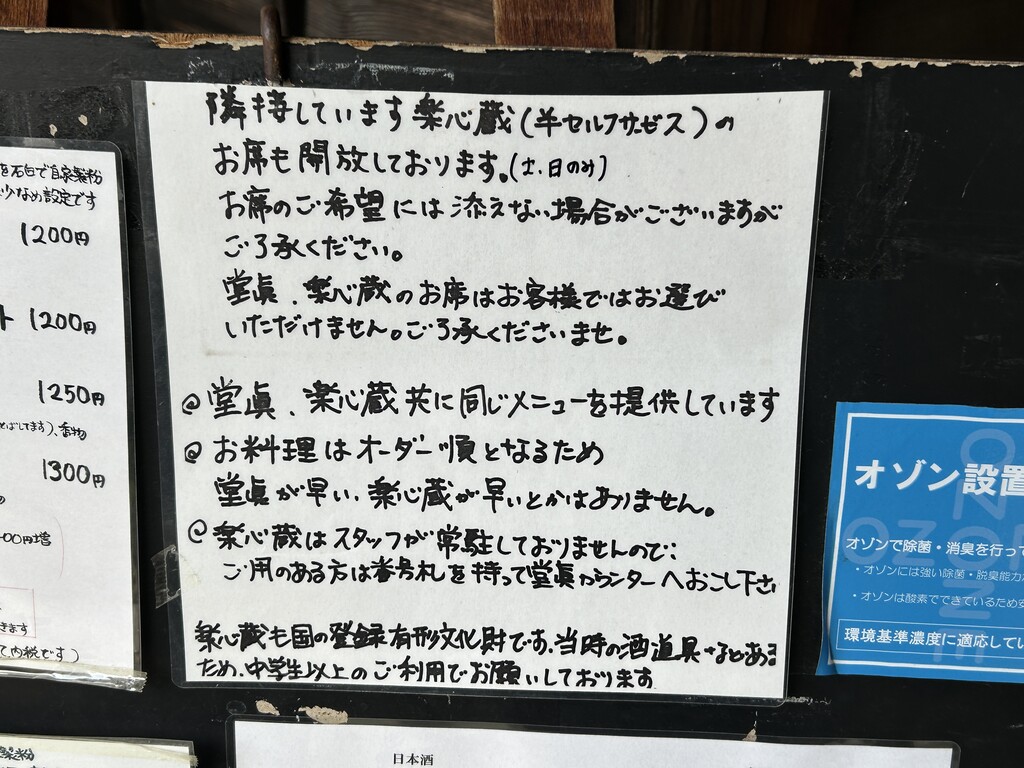 隣接しています楽心蔵(半セルフサービス)の
お席も開放しております。(土、日のみ)
お席のご希望には添えない場合がございますが
ご了承ください。
堂眞、楽心蔵のお席はお客様ではお選び
いただけません。ご了承くださいませ。
@堂眞、楽心蔵共に同じメニューを提供しています
@お料理はオーダー順となるため
堂眞が早い、楽心蔵が早いとかはありません。
@楽心蔵はスタッフが常駐しておりませんので、
ご用のある方は番号札を持って堂眞カウンターへおこし下さい
楽心蔵も国の登録有形文化財です。当時の酒道具などある
ため、中学生以上のご利用でお願いしております
を石臼で自家製粉
少なめ設定です
1200円
ト 1200円
1250円
とばしてます)、香物
1300円
の
00円増
きます
て内税です)
製粉
日本酒
オゾン設置
オゾンで除菌・消臭を行って
・オゾンには強い除菌・脱臭能力
・オゾンは酸素でできているため安
環境基準濃度に適応してい
OZONE